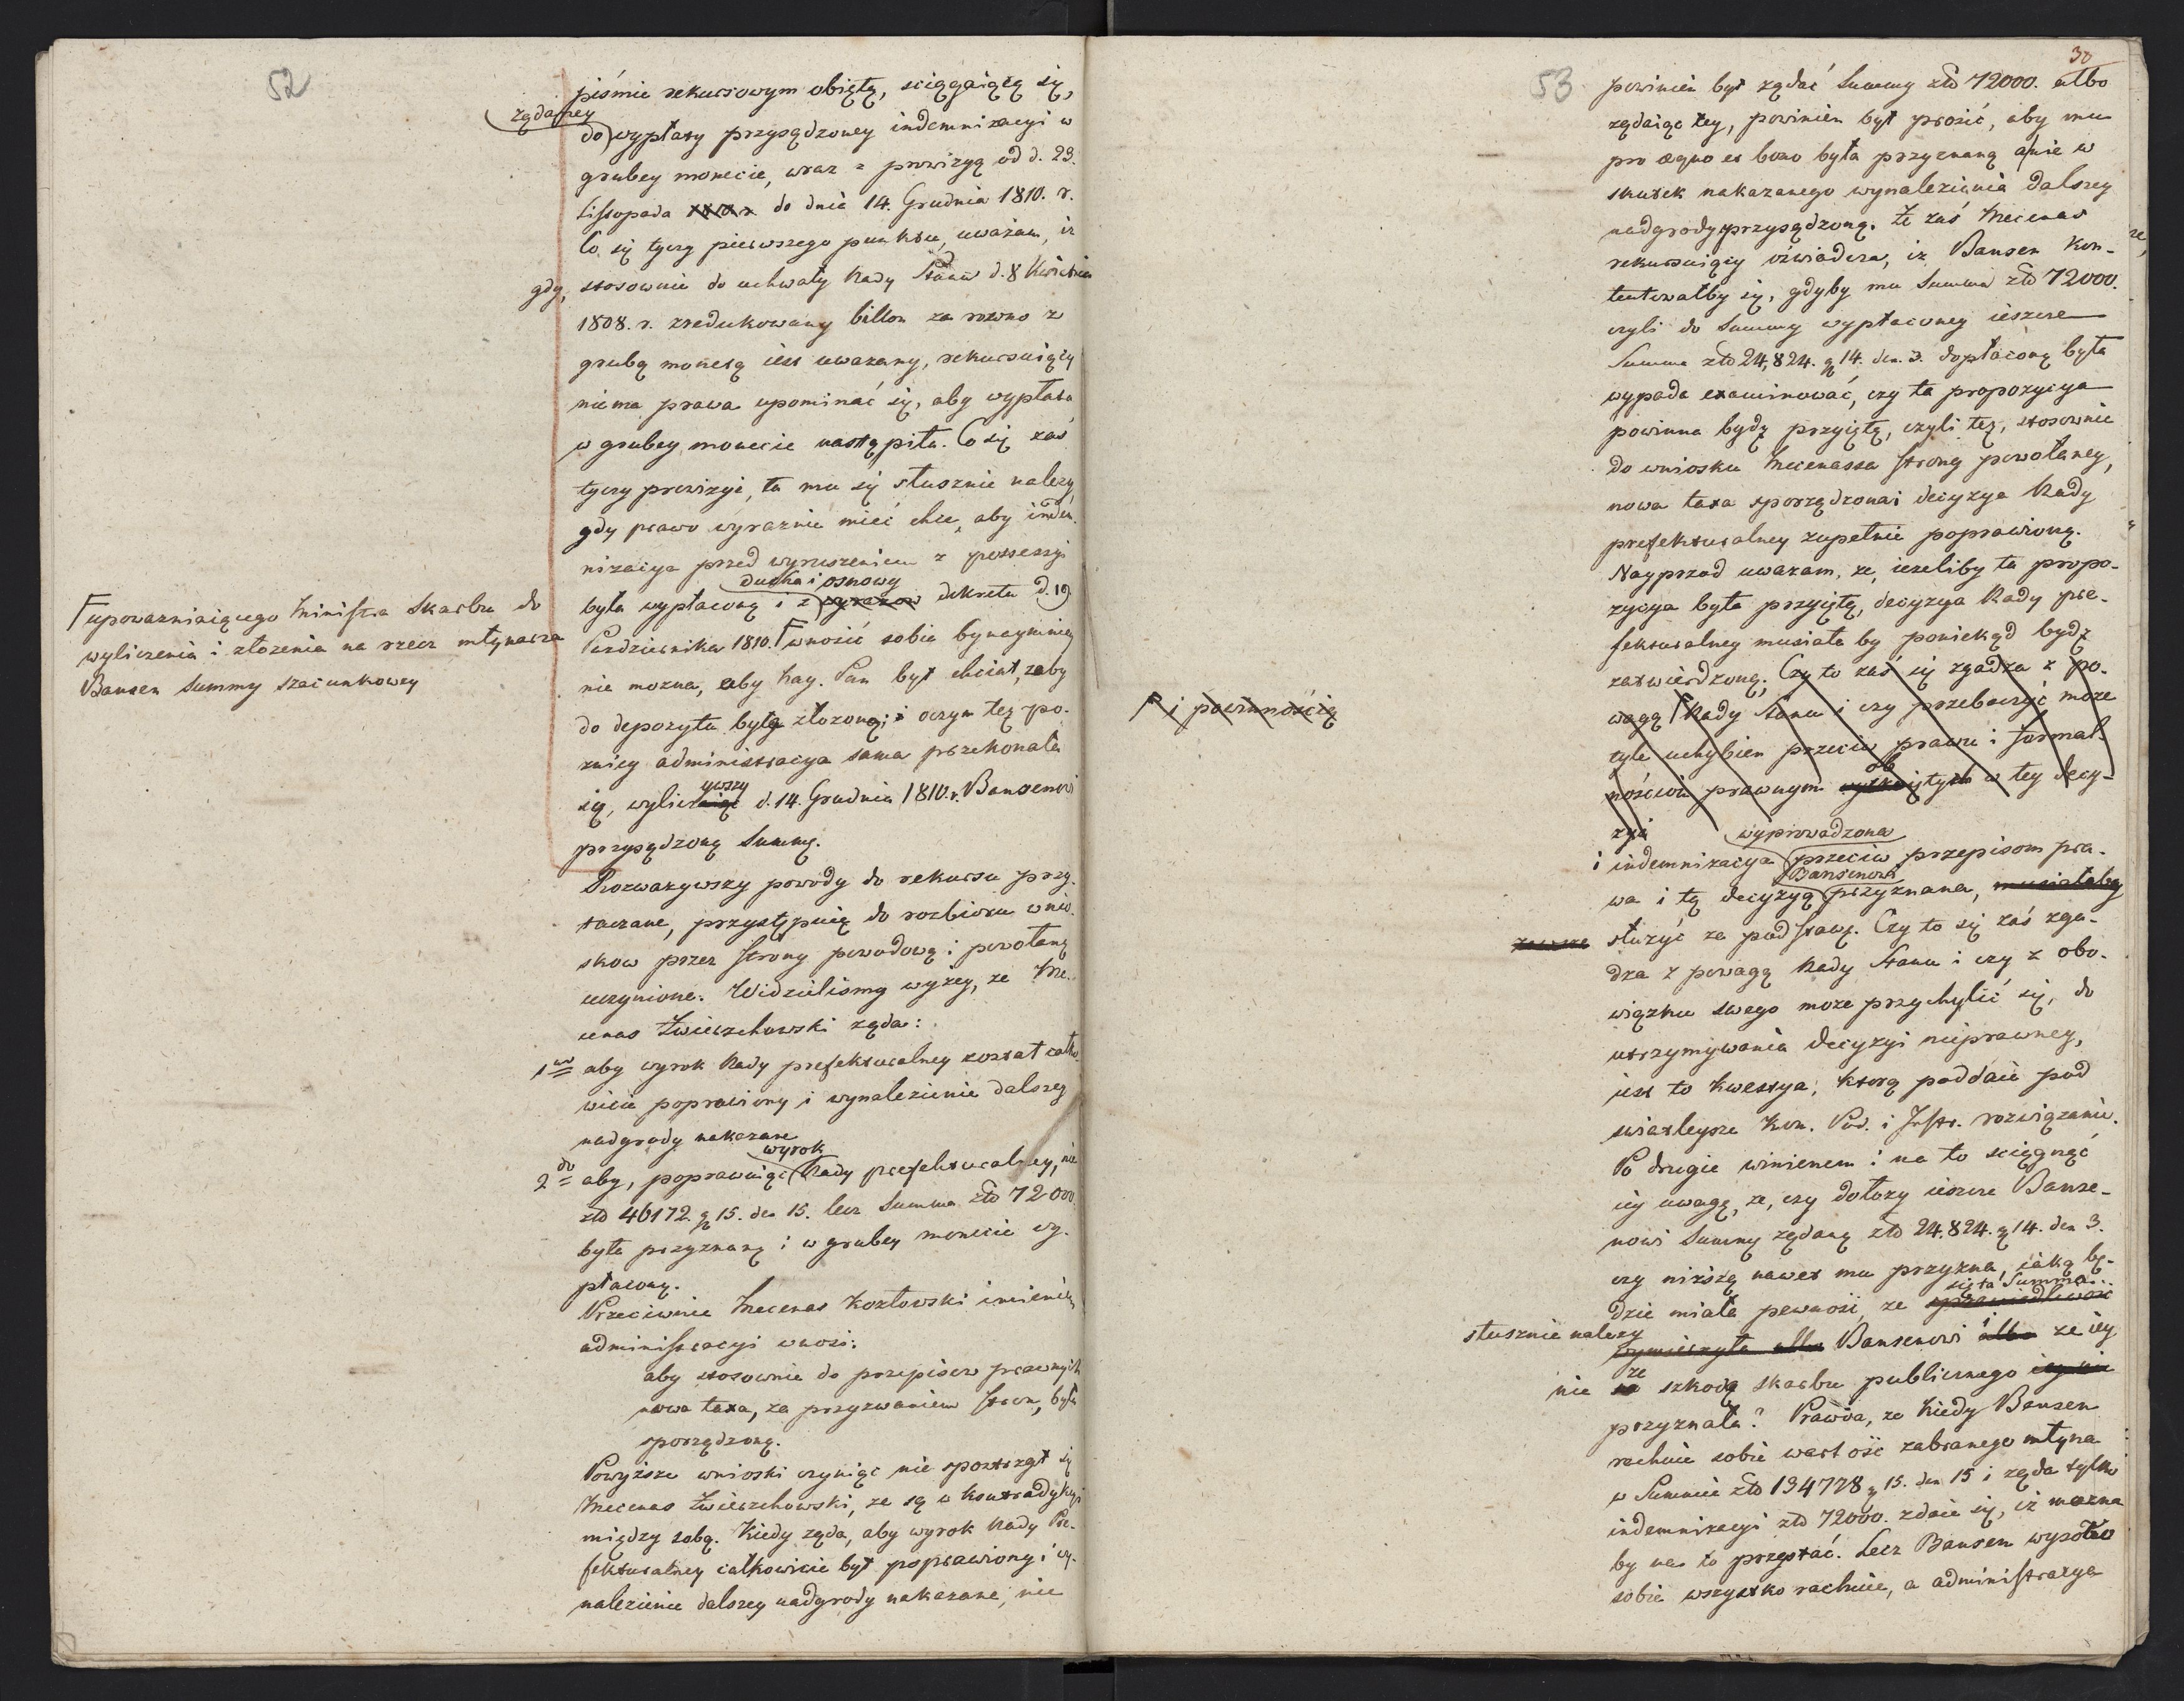 52
piśmie rekursowym obiętą, sciągaiącą się,
żądaney
do wypłaty przysądzoney indemnizacyi w
grubey monecie, wraz z prowizyą od d. 23.
Listopada do dnia 14. Grudnia 1810. r.
Co się tyczy pierwszego punktu, uważam, iż
gdy, stosownie do uchwały Rady Stanu d. 8 Kwietnia
1808. r. zredukowany billon za rowno z
grubą monetą iest uwazany, rekursuiący
niema prawa upominać się, aby wypłata
w grubey monecie nastąpiła. Co się zaś
tyczy prowizyi, ta mu się słusznie nalezy,
gdy prawo wyraznie mieć chce, aby indem-
nizacya przed wyruszeniem z possessyi
ducha i osnowy
była wypłaconą i z wyrazow dekretu d. 19
Pazdziernika 1810. Γ wnosić sobie bynaymniey
Γ upowazniaiącego Ministra Skarbu do
wyliczenia i złozenia na rzecz młynarza
Bansen Summy szacunkowey
nie mozna, aby Nay. Pan był chciał, żeby
do depozytu była złozoną; i o czym też po-
zniey administracya sama przekonała
ywszy
się, wylicz d. 14. Grudnia 1810. r. Bansenowi
przysądzoną Summę.
Rozwazywszy powody do rekursu przy-
taczane, przystępuię do rozbioru wnio-
skow przez strony powodową i powołaną
uczynione. Widzieliśmy wyżey, ze Me-
cenas Zwierzchowski żąda:
1mo aby wyrok Rady prefekturalney został całko-
wicie poprawiony i wynalezienie dalszey
nadgrody nakazane
wyrok
2do aby, poprawuiąc Rady prefekturalney, nie
złt 46172. g 15. den 15. lecz Summa złt 72000.
była przyznaną i w grubey monecie wy-
płaconą.
Przeciwnie Mecenas Kozłowski imieniem
administracyi wnosi:
aby stosownie do przepisow prawnych
nowa taxa, za przyzwaniem stron, była
sporządzoną.
Powyższe wnioski czyniąc nie spostrzegł się
Mecenas Zwierzchowski, ze są w kontradykcyi
między sobą. Kiedy żąda, aby wyrok Rady Pre-
fekturalney całkowicie był poprawiony i wy-
nalezienie dalszey nadgrody nakazane, nie
30
53
powinien był żądać Summy złt 72000. albo
żądaiąc tey, powinien był prosić, aby mu
pro aequo et bono była przyznaną a nie w
skutek nakazanego wynalezienia dalszey
nadgrody przysądzoną. Że zaś Mecenas
rekursuiący oświadcza, iż Bansen kon-
tentowałby się, gdyby mu Summa złt 72000.
czyli do Summy wypłaconey ieszcze
Summa złt 24,824. g 14. den. 3. dopłaconą była
wypada examinować, czy ta propozycya
powinna bydź przyiętą, czyli też, stosownie
do wniosku Mecenassa strony powołaney,
nowa taxa sporządzona i decyzya Rady
prefekturalney zupełnie poprawioną.
Nayprzod uwazam, ze, iezeliby ta propo-
zycya była przyiętą, decyzya Rady pre-
fekturalney musiała by poniekąd bydź
zatwierdzoną. Czy to zaś się zgadza z po-
wagą Γ Rady Stanu i czy przebaczyć może
Γ i powinnością
tyle uchybien przeciw prawu i formal-
nościom prawnym ob iętych w tey decy-
zyi
wyprowadzona
i indemnizacya przeciw przepisom pra-
Bansenowi
wa i tę decyzyą przyznana, musiałaby
zawsze służyć za podstawę. Czy to się zaś zga-
dza z powagą Rady Stanu i czy z obo-
wiązku swego może przychylić się, do
utrzymywania decyzyi nieprawney,
iest to kwestya, ktorą poddaię pod
swiatleysze Kom. Pod. i Instr. rozwiązanie.
Po drugie winienem i na to sciągnąć
iey uwagę, ze, czy dołoży ieszcze Banse-
nowi Summę żądaną złt 24.824. g 14. den 3.
czy niższą nawet mu przyzna, iaką bę-
się ta Summa
dzie miała pewność, ze sprawiedliwość
słusznie nalezy
wymierzyła albo Bansenowi albo ze iey
nie ze szkodą skarbu publicznego
przyznała? Prawda, ze kiedy Bansen
rachuie sobie wartość zabranego młyna
w Summie złt 134778 g 15. den 15 i żąda tylko
indemnizacyi złt 72000. zdaie się, iż mozna
by na to przystać. Lecz Bansen wysoko
sobie wszystko rachuie, a administracya